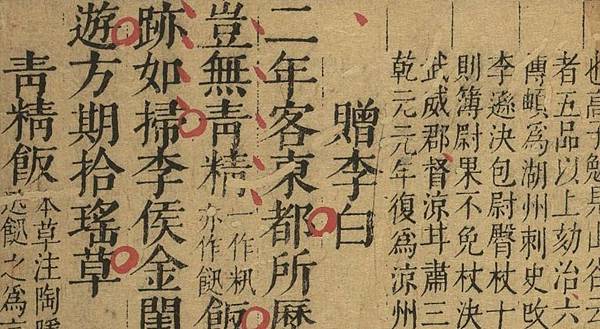 也高子勉見山谷云
者五品以上劾治六
傳頔爲湖州刺史改
李遜決包尉臀杖十
則簿尉果不免杖決
武威郡督涼幷肅三
乾元元年復爲涼州
贈李白
二年客東都所歷
豈無靑精一作亦作飯
跡如掃李侯金閨
遊方期拾瑤草
靑精飯本草注陶隱